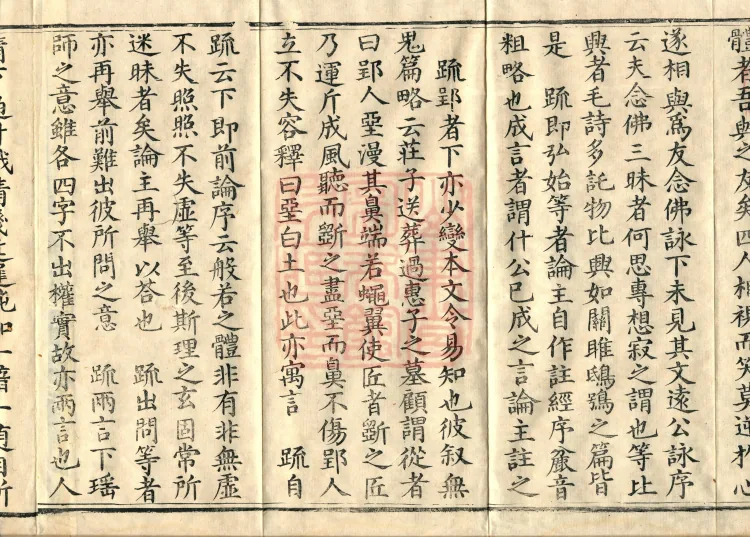 體者吾與之友矣四人相視而笑莫逆於心
遂相與爲友念佛詠下未見其文遠公詠序
云夫念佛三昧者何思專想寂之謂也等比
興者毛詩多託物比興如關雎鴟鴞之篇皆
是　疏即弘始等者論主自作註經序麁音
粗略也成言者謂什公已成之言論主註之
疏郢者下亦少變本文令易知也彼叙無
鬼篇略云莊子送葬過惠子之墓顧謂從者
曰郢人堊漫其鼻端若蠅翼使匠者斵之匠
乃運斤成風聽而斵之盡堊而鼻不傷郢人
立不失容釋曰堊白土也此亦寓言　疏自
疏云下即前論序云般若之體非有非無虛
不失照照不失虛等至後斯理之玄固常所
迷昧者矣論主再舉以荅也　疏出問等者
亦再舉前難出彼所問之意　疏兩言下瑶
師之意雖各四字不出權實故亦兩言也人